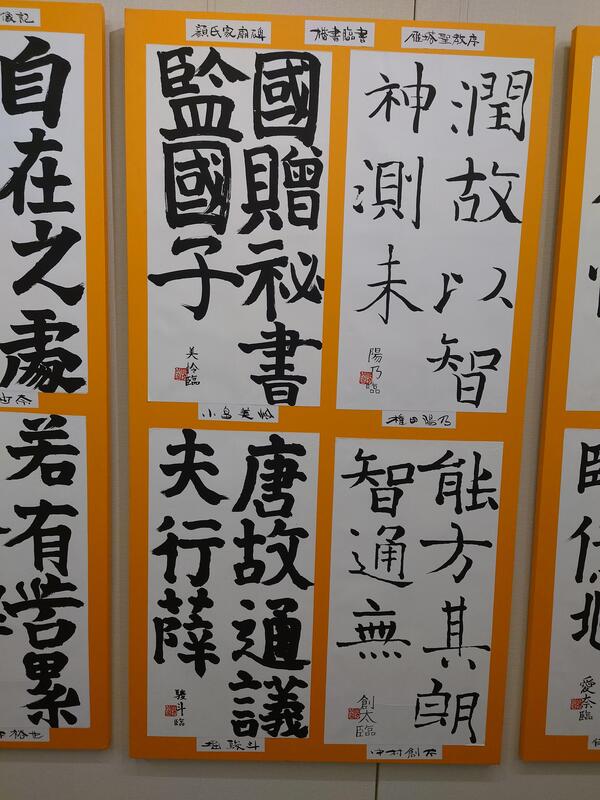 顔氏家廟碑
楷書臨書
雁塔聖教序
國贈祕書
監國子
美怜臨
小島美怜
潤故以智
神測未
陽乃臨
田陽乃
唐故通議
夫行薛
駿斗臨
堀 駿斗
能方其朗
智通無
創太臨
中村創太
自在之處
若有累
愛奈臨